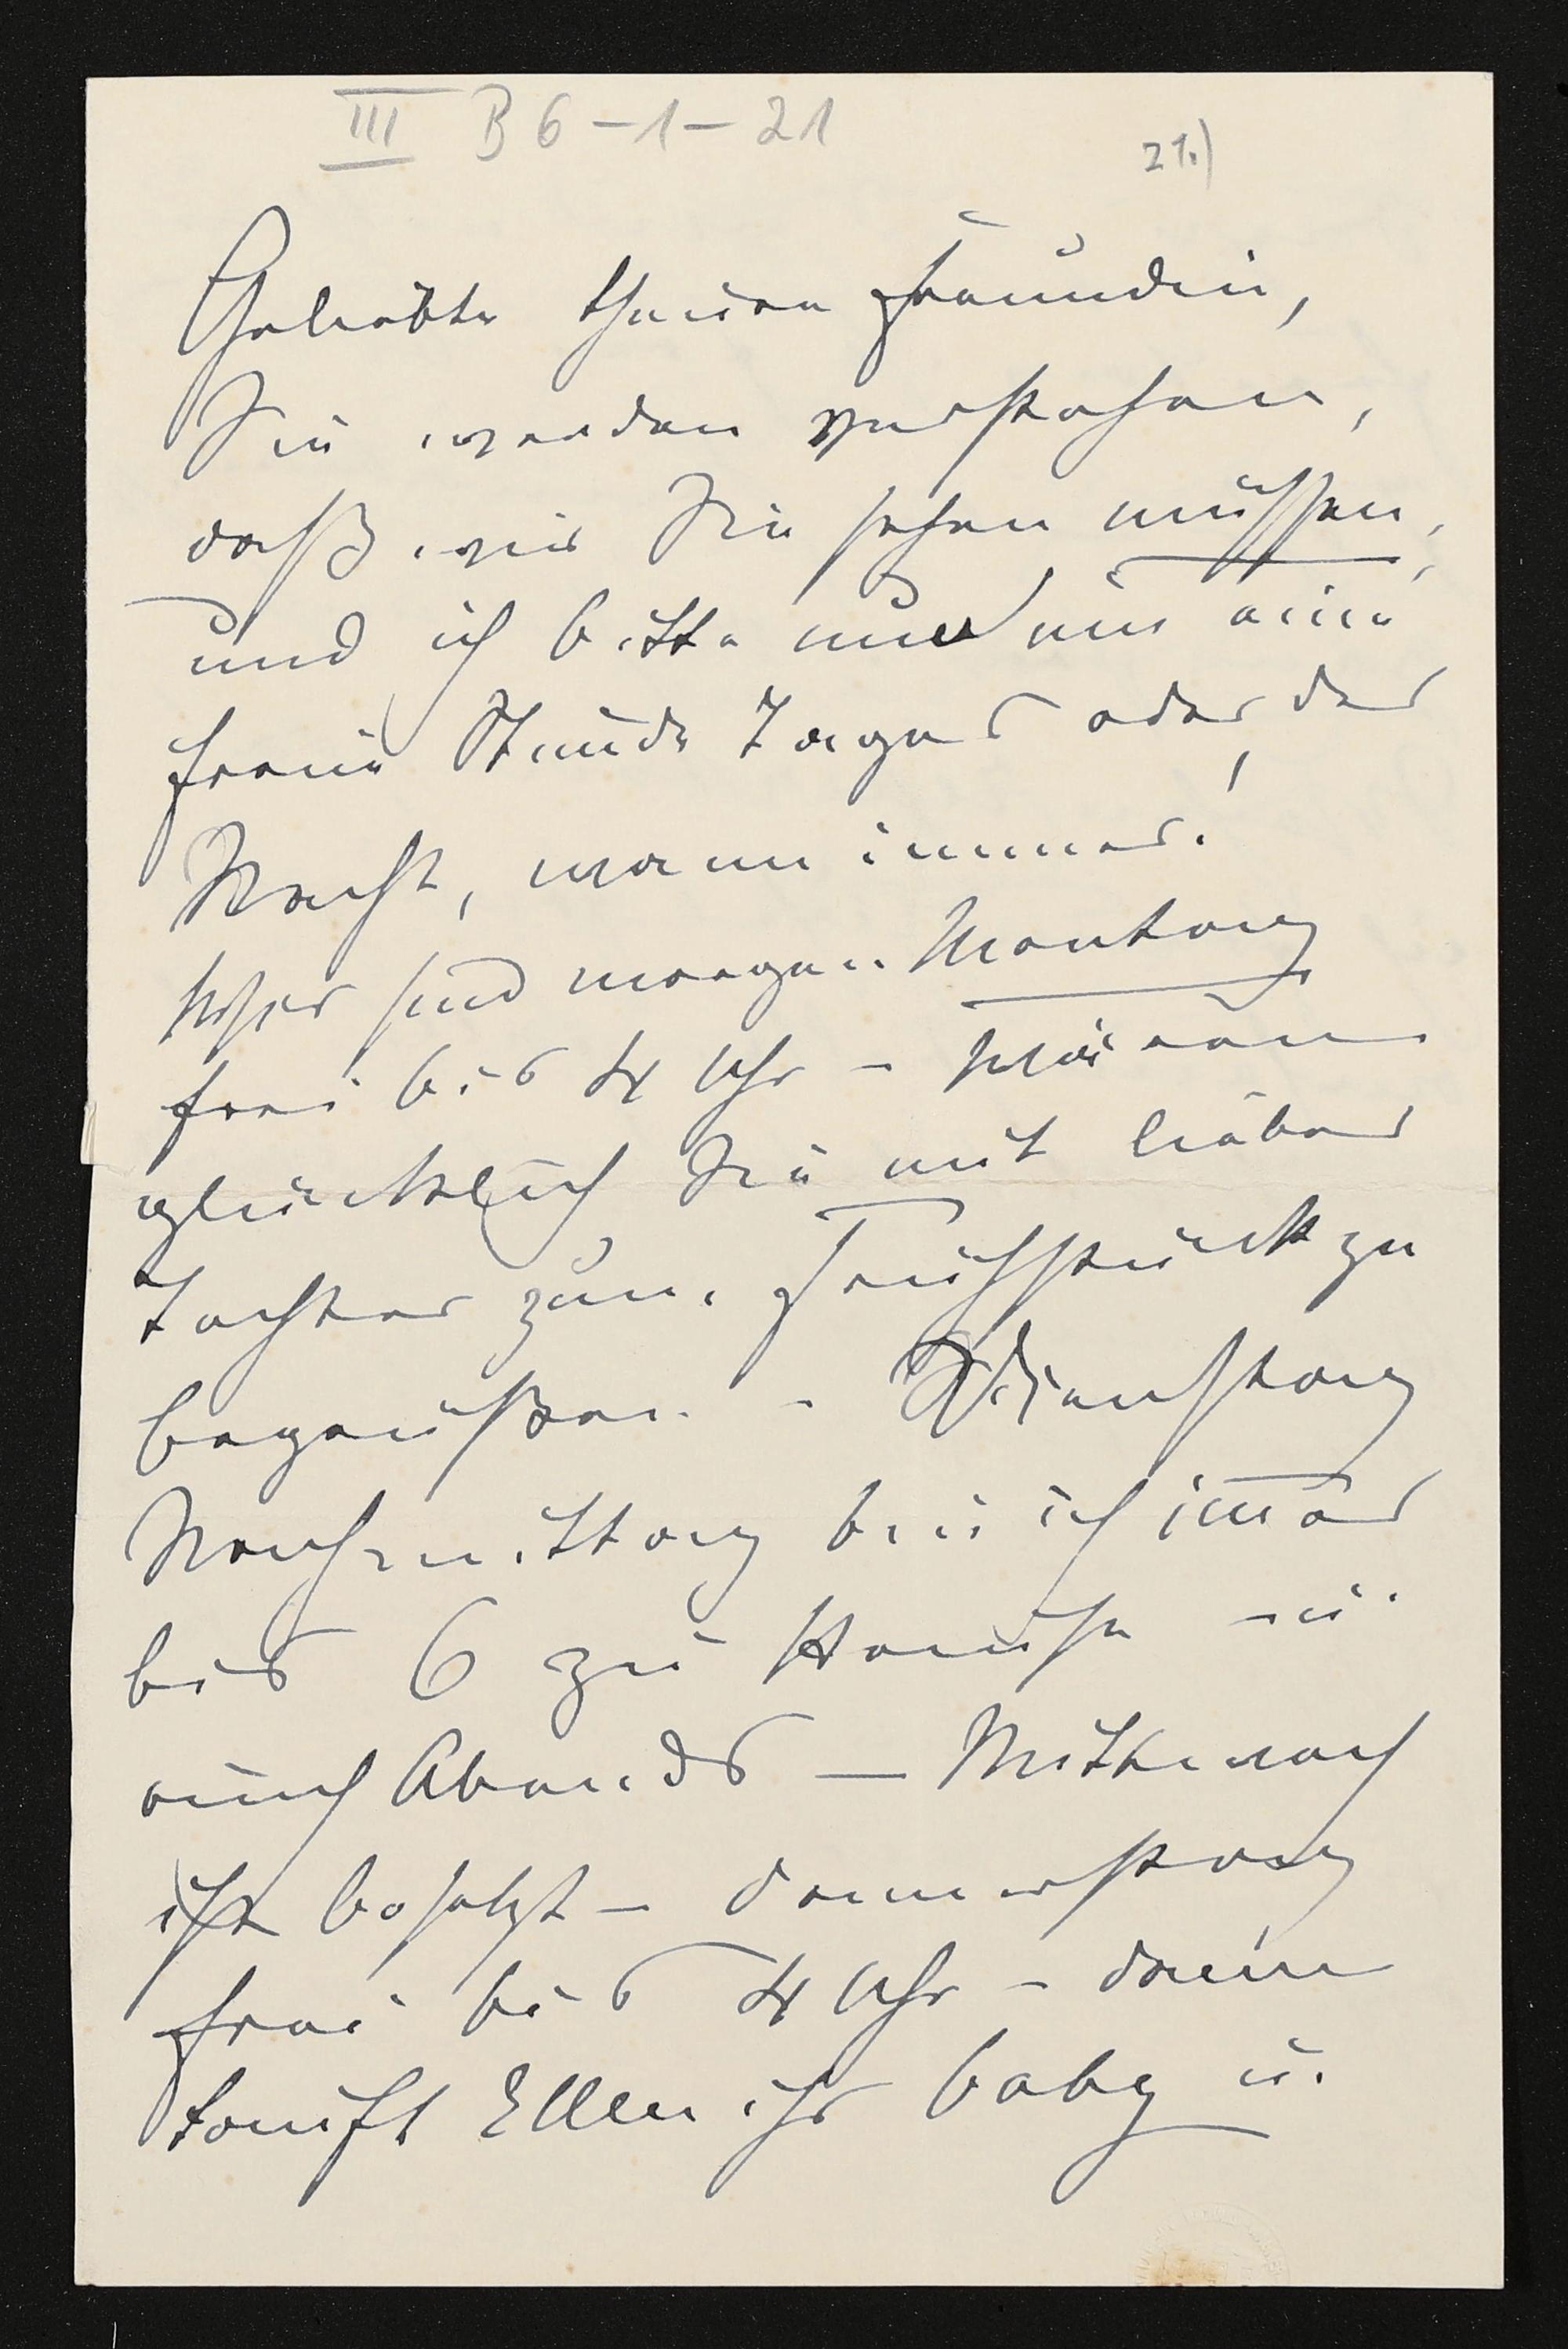 III B 6-1-21
21.)
Geliebte theure Freundin,
Sie werden verstehen,
daß wir Sie sehen müssen,
und ich bitte nur um eine
freie Stunde Tages oder der
Nacht, wann immer.
Wir sind morgen Montag
frei bis 4 Uhr – wären
glücklich Sie mit lieber
Tochter zum Frühstück zu
begrüßen. – Dienstag
Nachmittag bin ich immer
bis 6 zu Hause u.
auch Abends – Mittwoch
ist besetzt – Donnerstag
frei bis 4 Uhr – dann
tauft Ellen ihr baby u.